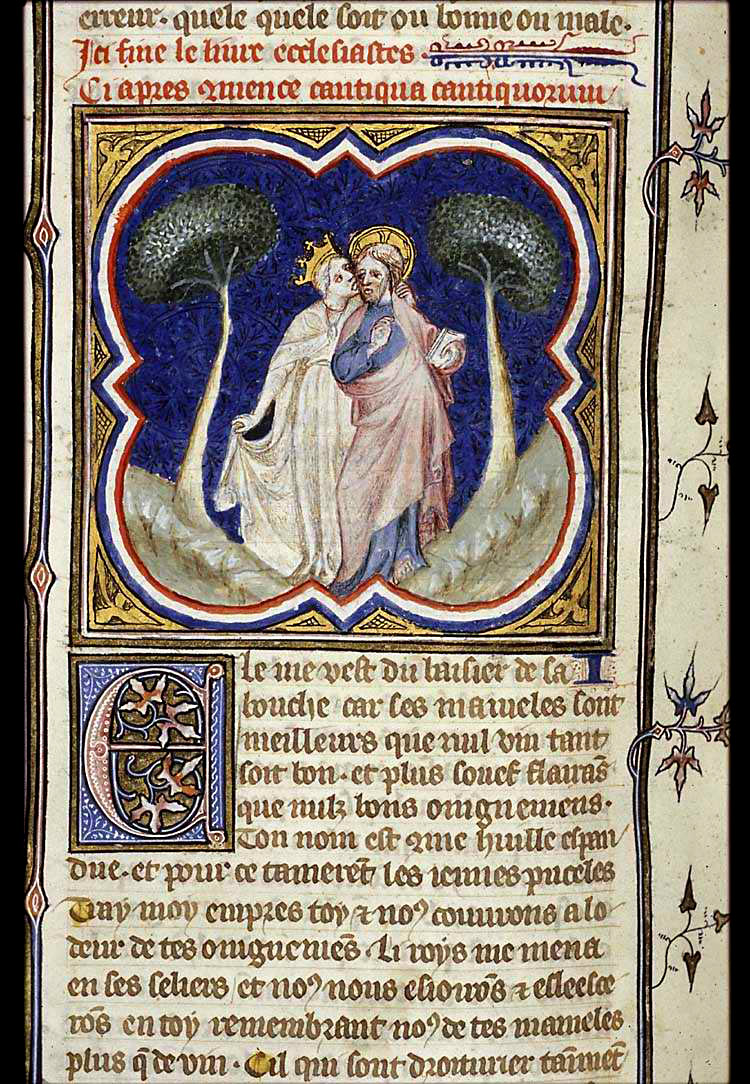 erreur. quele quele soit ou bonne ou male.
Ici fine le liure ecclesiastes.
Ci apres 9mence cantiqua cantiquorum
Ele me vest du baisier de sa I
bouche car ses mameles sont
meilleurs que nul vin tant
soit bon. et plus souef flairās
que nulz bons oingnemens.
Ton nom est 9me huille espan
due. et pour ce tamerent les iennes puceles
Tray moy empres toy ⁊ no9 courrons a lo
deur de tes oingnemēs. Li roys me mena
en ses seliers et no9 nous esiorrōs ⁊ esleesce
rōs en toy remembrant no9 de tes mameles
plus q̄ de vin. Cil qui sont droiturier taīment